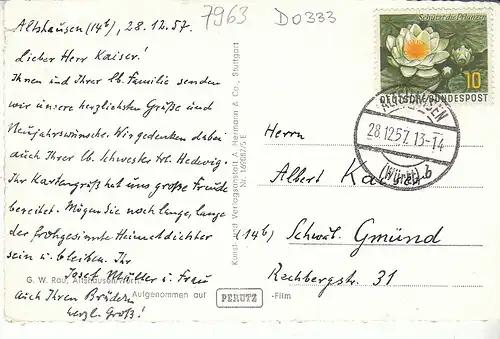 7963 D0333
Altshausen (14b), 28.12.57.
Lieber Herr Kaiser!
Ihnen und Ihrer lb. Familie senden
wir unsere herzlichsten Grüße und
Neujahrswünsche. Wir gedenken dabei
auch Ihrer lb. Schwester Frl. Hedwig.
Ihr Kartengruß hat uns große Freude
bereitet. Mögen Sie noch lange, lange
der frohgesinnte Heimatdichter
sein u. bleiben. Ihr
Josef Müller u. Frau
auch Ihren Brüdern
herzl. Gruß!
G. W. Rau, Altshausen/Württ.
Aufgenommen auf PERUTZ -Film
Kunst- und Verlagsanstalt A. Hermann & Co., Stuttgart
Nr. 16988/5 E
Schützt die Pflanzen
10
DEUTSCHE BUNDESPOST
28.12.57. 13-14
(Württ) b
Herrn
Albert Kaiser
(14b) Schwäb. Gmünd
Rechbergstr. 31